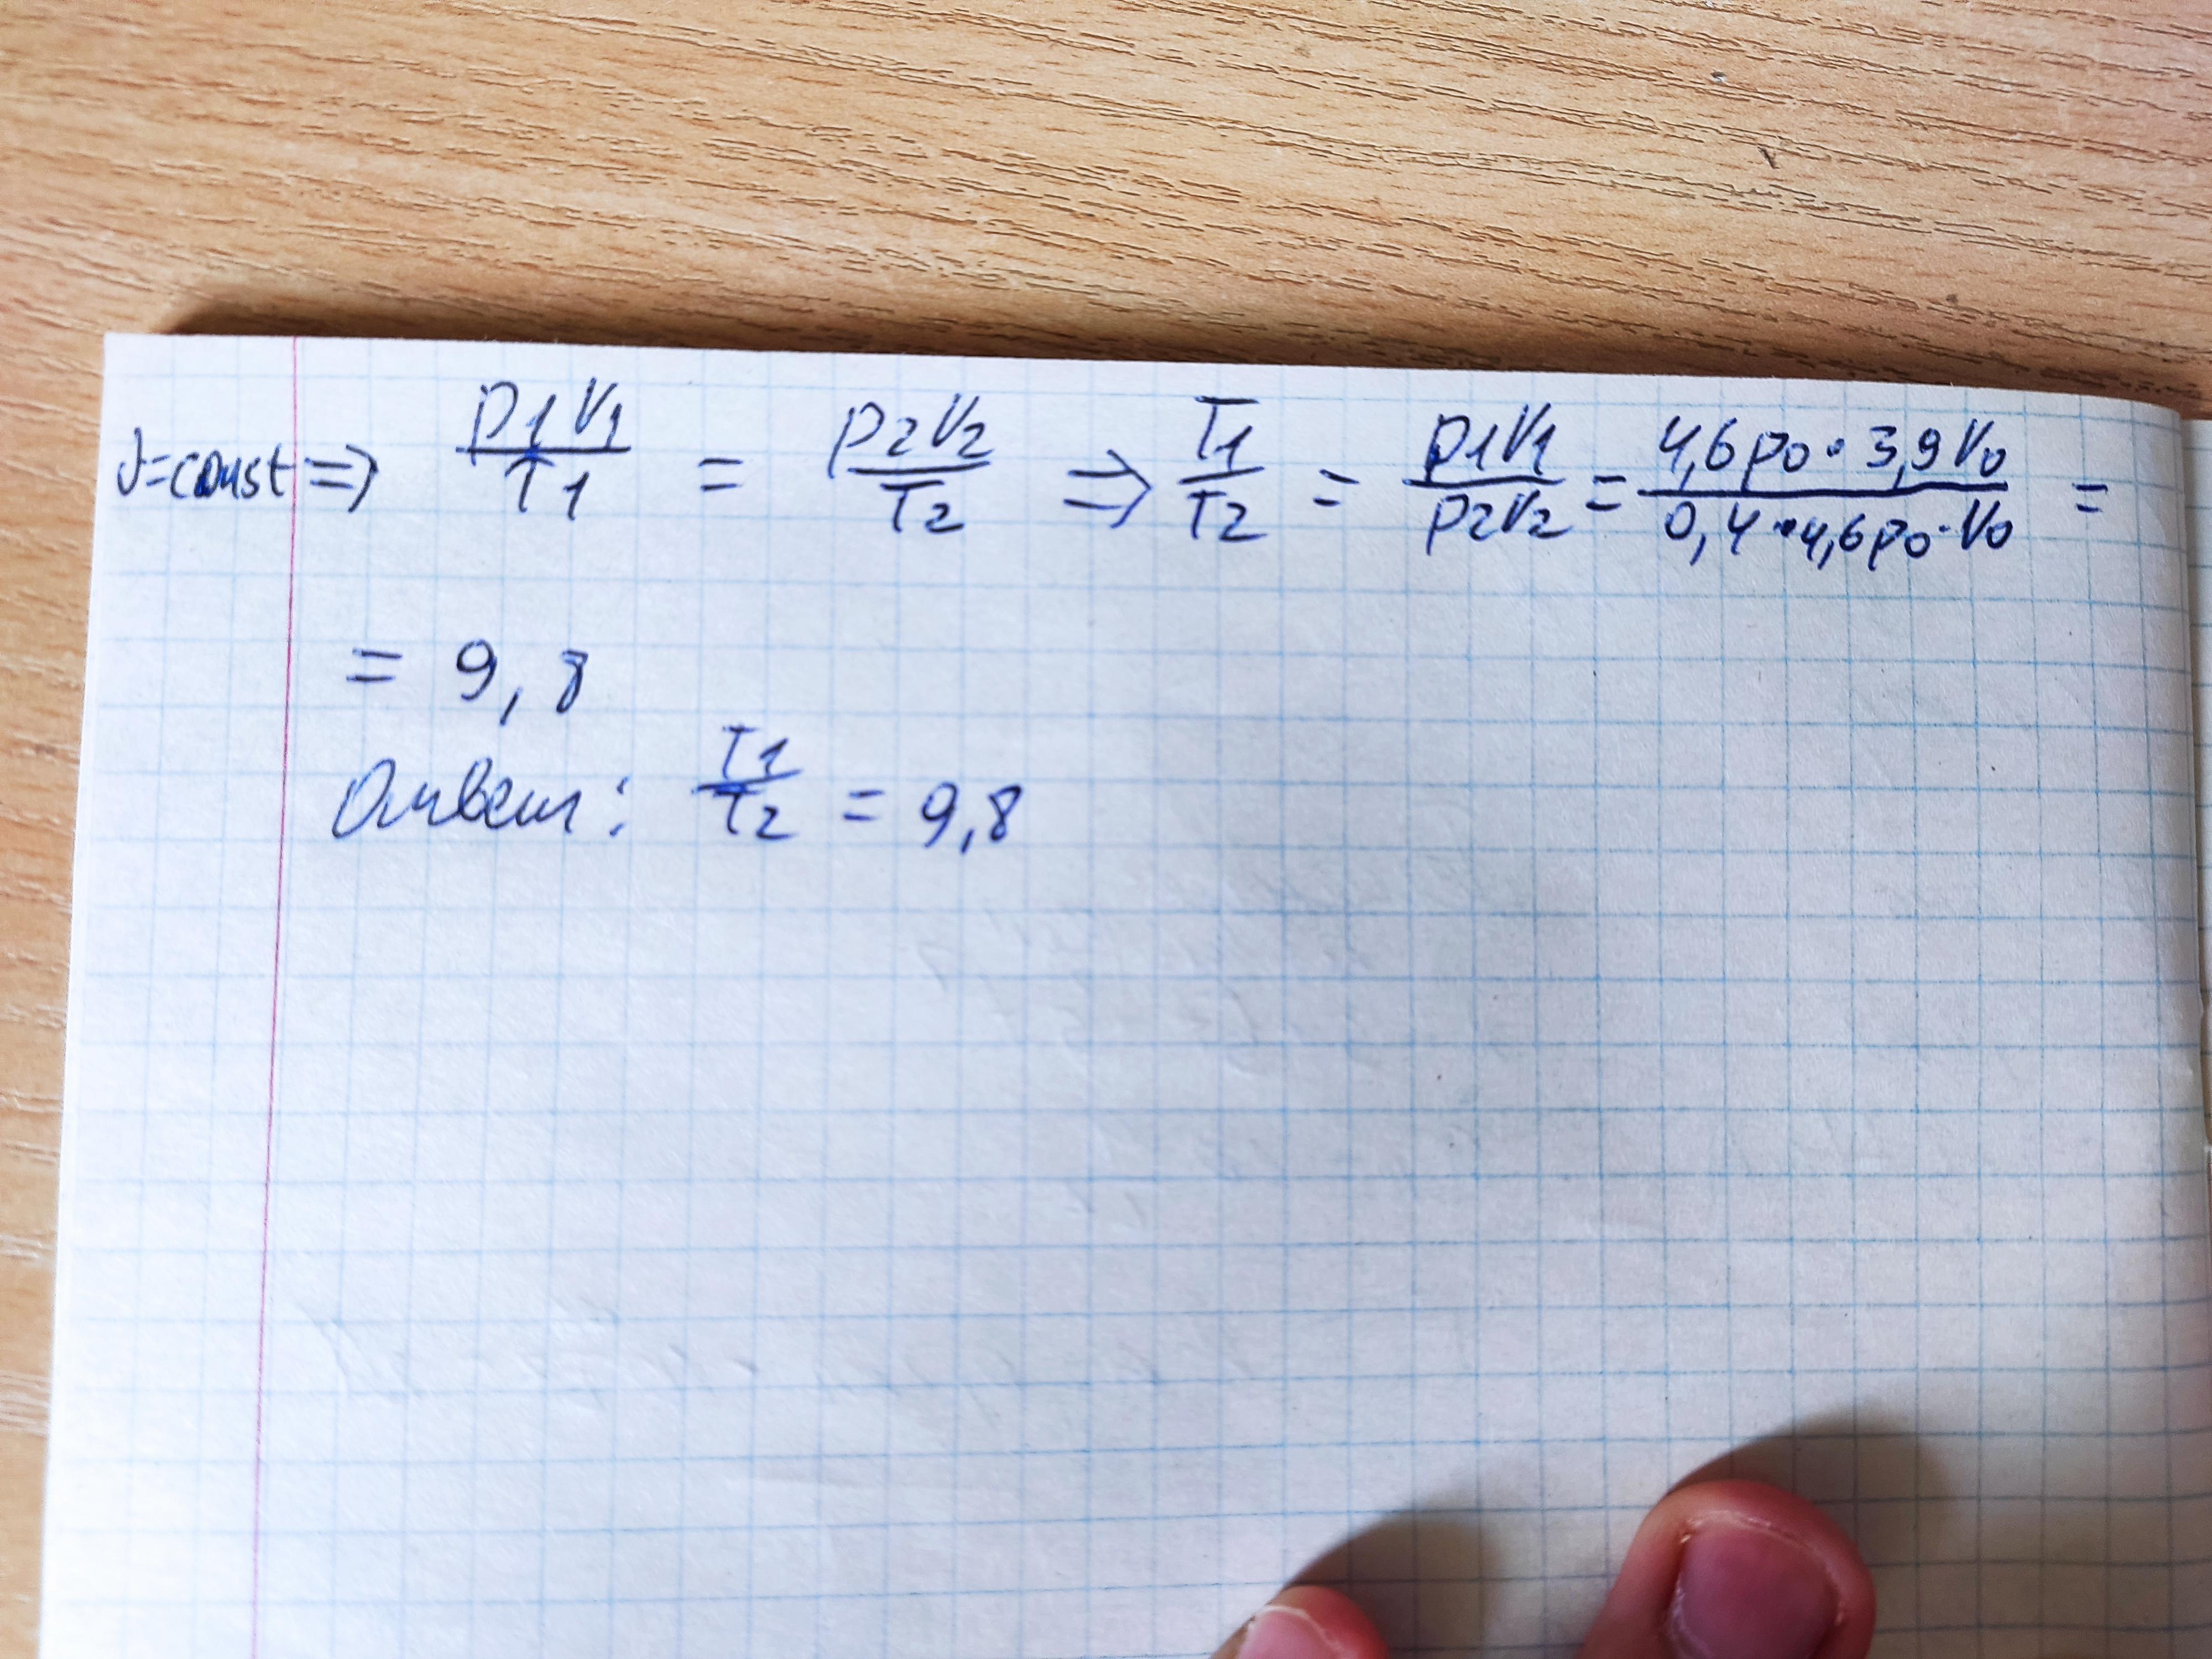 ν=const ⇒ p₁V₁/T₁ = p₂V₂/T₂ ⇒ T₁/T₂ = p₁V₁/p₂V₂ = 4,6p₀·3,9V₀/0,4·4,6p₀·V₀ =
= 9,8
Ответ: T₁/T₂ = 9,8